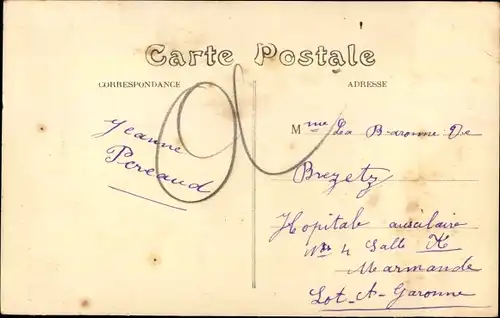 Carte Postale
CORRESPONDANCE
ADRESSE
Jeanne
Pereaud
Mme La Baronne De
Brezetz
Hopitale auxilaire
No 4 Salle K
Marmande
Lot-A-Garonne